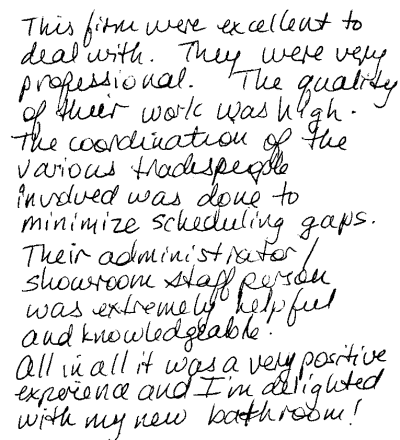 This firm were excellent to
deal with. They were very
professional. The quality
of their work was high.
The coordination of the
various tradespeople
involved was done to
minimize scheduling gaps.
Their administrator/
showroom staff person
was extremely helpful
and knowledgeable.
All in all it was a very positive
experience and I'm delighted
with my new bathroom!